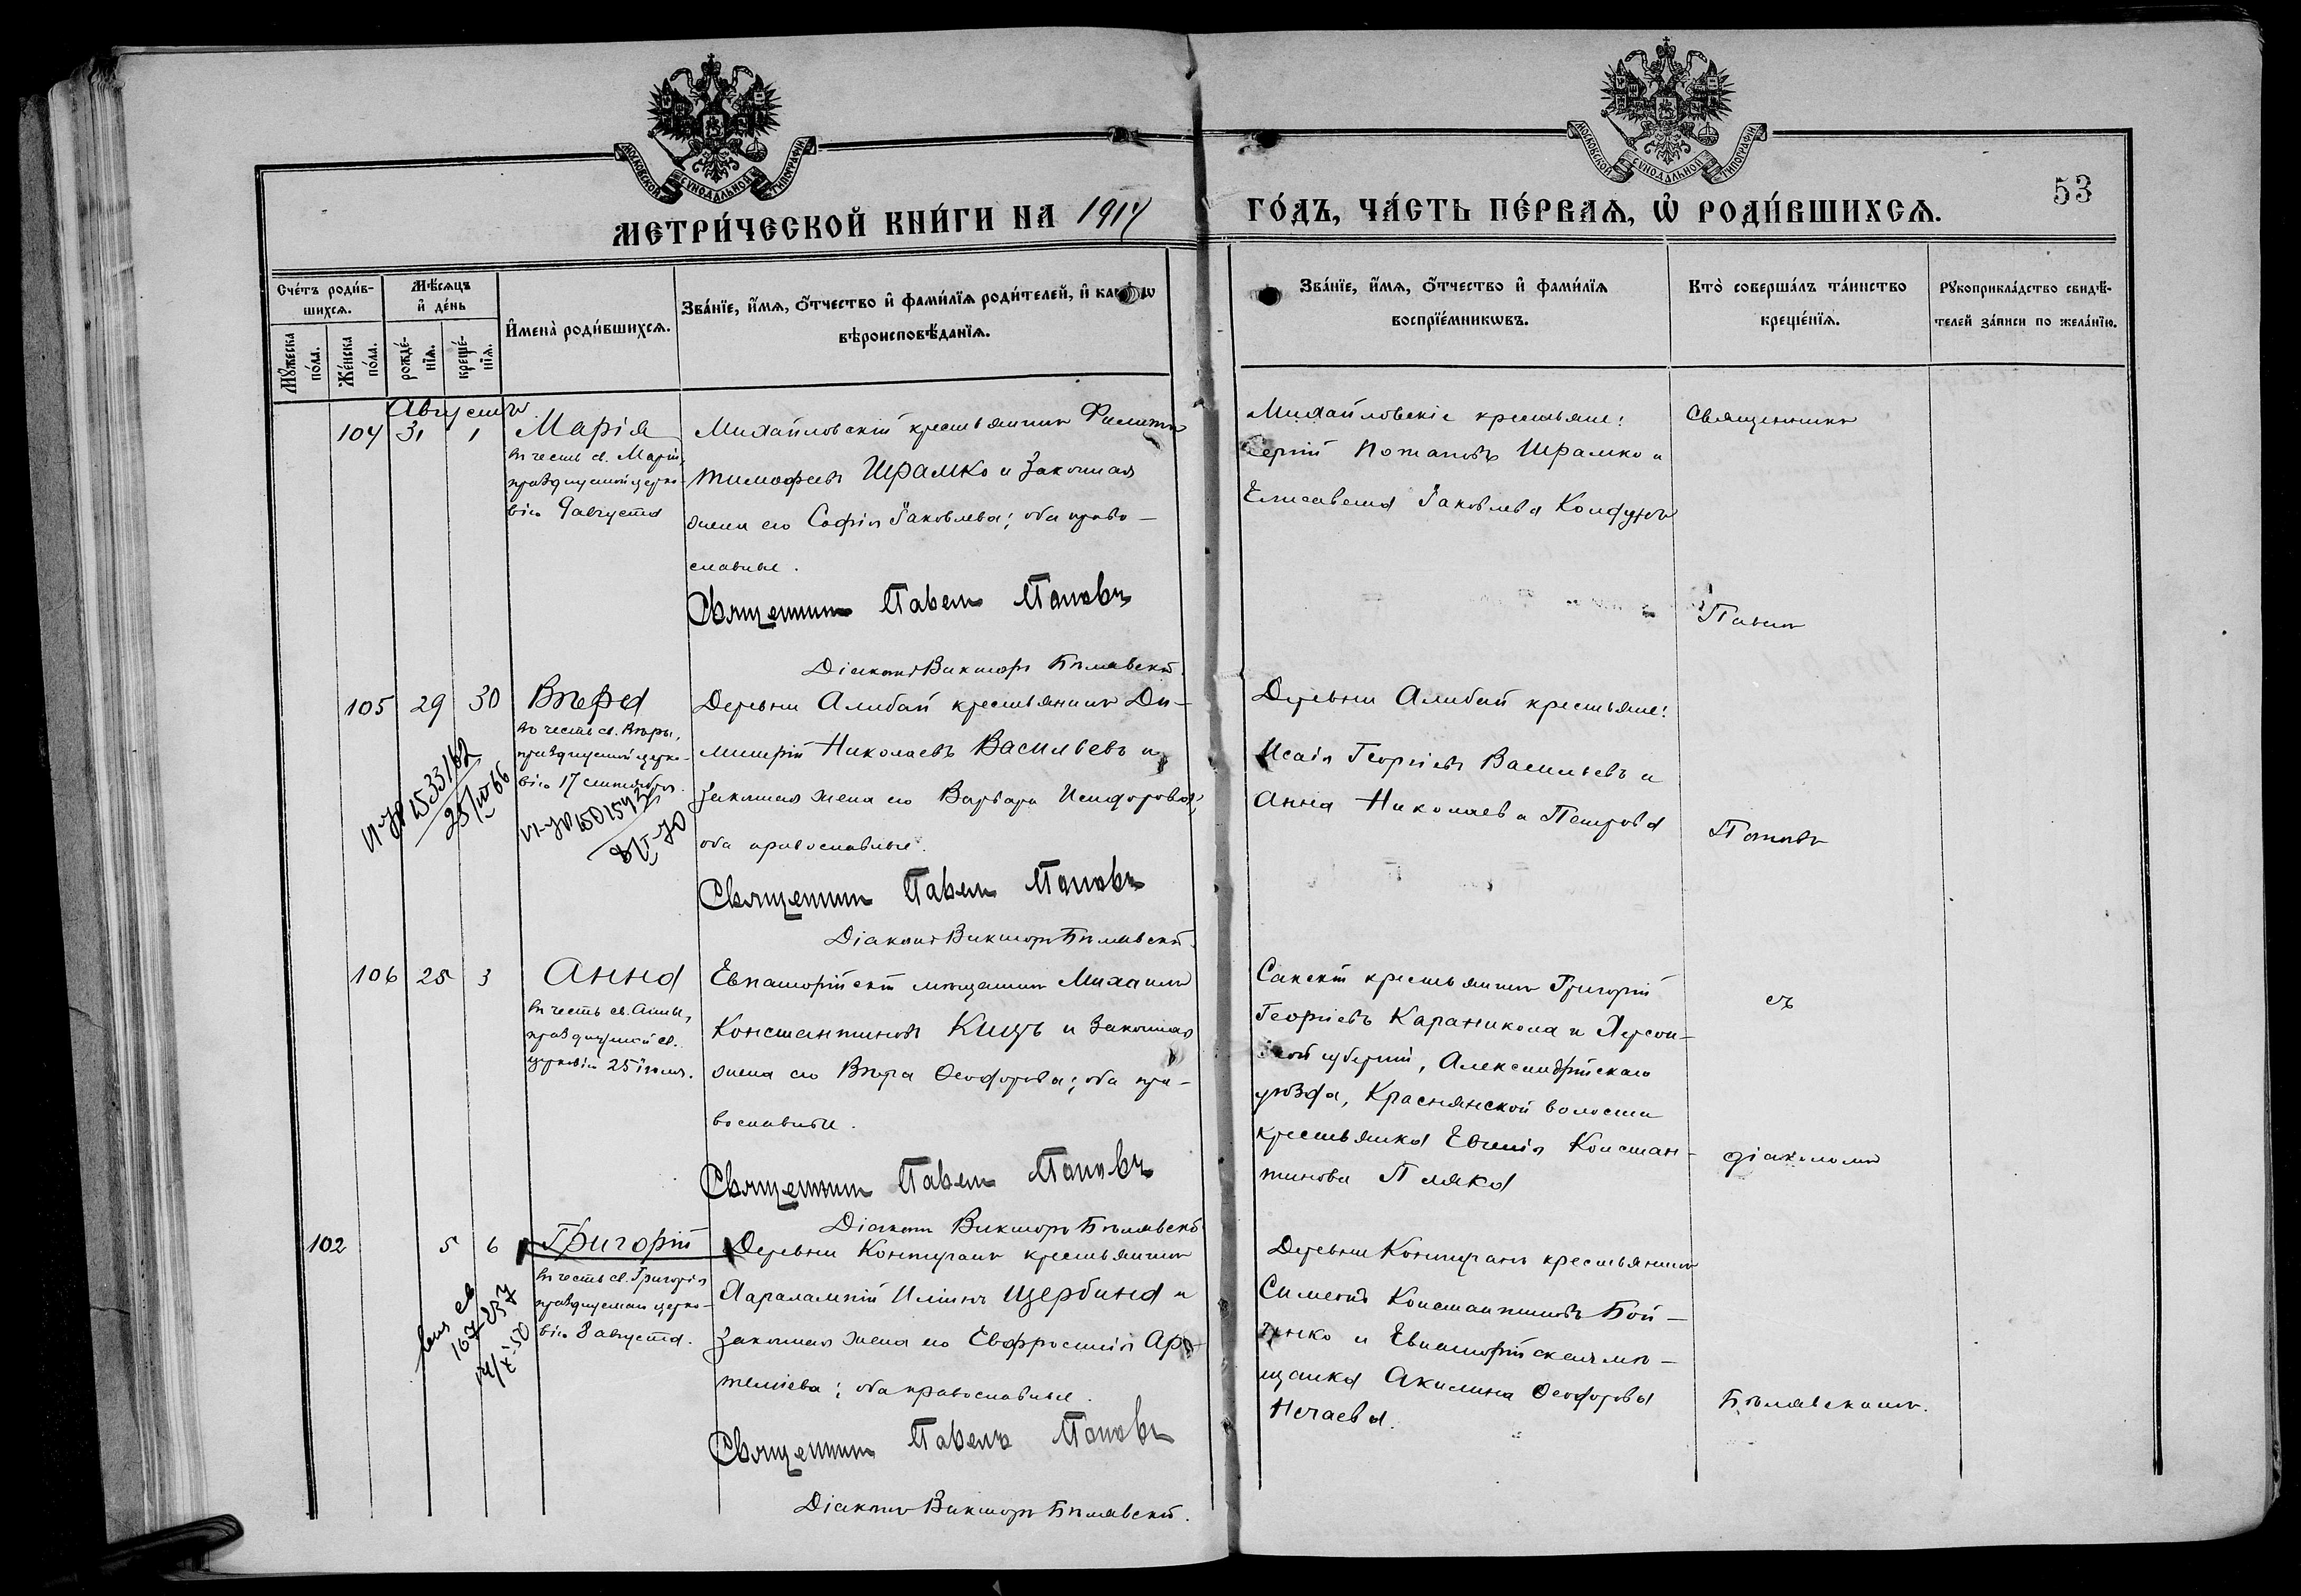 МОСКОВСКОЙ СѴНОДАЛЬНОЙ ТИПОГРАФІИ
МЕТРИ́ЧЕСКОЙ КНИ́ГИ НА 1914
МОСКОВСКОЙ СѴНОДАЛЬНОЙ ТИПОГРАФІИ
ГО́ДЪ, ЧА́СТЬ ПЕ́РВАѦ, Ѡ҆ РОДИ́ВШИХСѦ.
53
Сче́тъ роди́в-
шихсѧ.
Мꙋ́жеска
по́ла.
Же́нска
по́ла.
Мѣ́сѧцъ
и҆ де́нь
рожде́-
нїѧ.
креще́-
нїѧ.
И҆мена̀ роди́вшихсѧ.
Зва́нїе, и҆́мѧ, ѻ҆́тчество и҆ фами́лїѧ роди́телей, и҆
вѣроисповѣ́данїѧ.
Зва́нїе, и҆́мѧ, ѻ҆́тчество и҆ фами́лїѧ
воспрїе́мникѡвъ.
Кто̀ соверша́лъ та́инство
креще́нїѧ.
Рꙋкоприкла́дство свидѣ́-
телей за́писи по жела́нїю.
Августъ
104 31 1 Марія
въ честь св. Маріи,
празднуемой церко-
вію 9 августа
Михайловскій крестьянинъ Филиппъ
Тимофеевъ Шрамко и законная
жена его Софія Іаковлева; оба право-
славные.
Священникъ Павелъ Поповъ
Діаконъ Викторъ Бѣлявскій.
Михайловскіе крестьяне:
Сергій Потаповъ Шрамко и
Елисавета Іаковлева
Священникъ
Павелъ
105 29 30 Вѣра
въ честь св. Вѣры,
празднуемой церко-
вію 17 сентября.
25/IV 66
Деревни Алибай крестьянинъ Ди-
митрій Николаевъ Васильевъ и
законная жена его Варвара Исидорова;
оба православные.
Священникъ Павелъ Поповъ
Діаконъ Викторъ Бѣлявскій.
Деревни Алибай крестьяне:
Исаія Георгіевъ Васильевъ и
Анна Николаева Петрова
Поповъ
106 25 3 Анна
въ честь св. Анны,
празднуемой св.
церковію 25 іюля.
Евпаторійскій мѣщанинъ Михаилъ
Константиновъ Кицъ и законная
жена его Вѣра Ѳеодорова; оба пра-
вославные.
Священникъ Павелъ Поповъ
Діаконъ Викторъ Бѣлявскій
Сакскій крестьянинъ Григорій
Георгіевъ Караникола и Херсон-
ской губерніи, Александрійскаго
уѣзда, Краснянской волости
крестьянка Евгенія Констан-
тинова Пляка
съ
діакономъ
102 5 6 Григорій
въ честь св. Григорія
празднуемаго церко-
вію 8 августа.
Деревни Контуганъ крестьянинъ
Харалампій Иліинъ Щербина и
законная жена его Евфросинія Ар-
теміева; оба православные.
Священникъ Павелъ Поповъ
Діаконъ Викторъ Бѣлявскій.
Деревни Контуганъ крестьянинъ
Симеонъ Константиновъ Бой-
и Евпаторійская мѣ-
щанка Акилина Ѳеодорова
Нечаева.
Бѣлявскимъ.